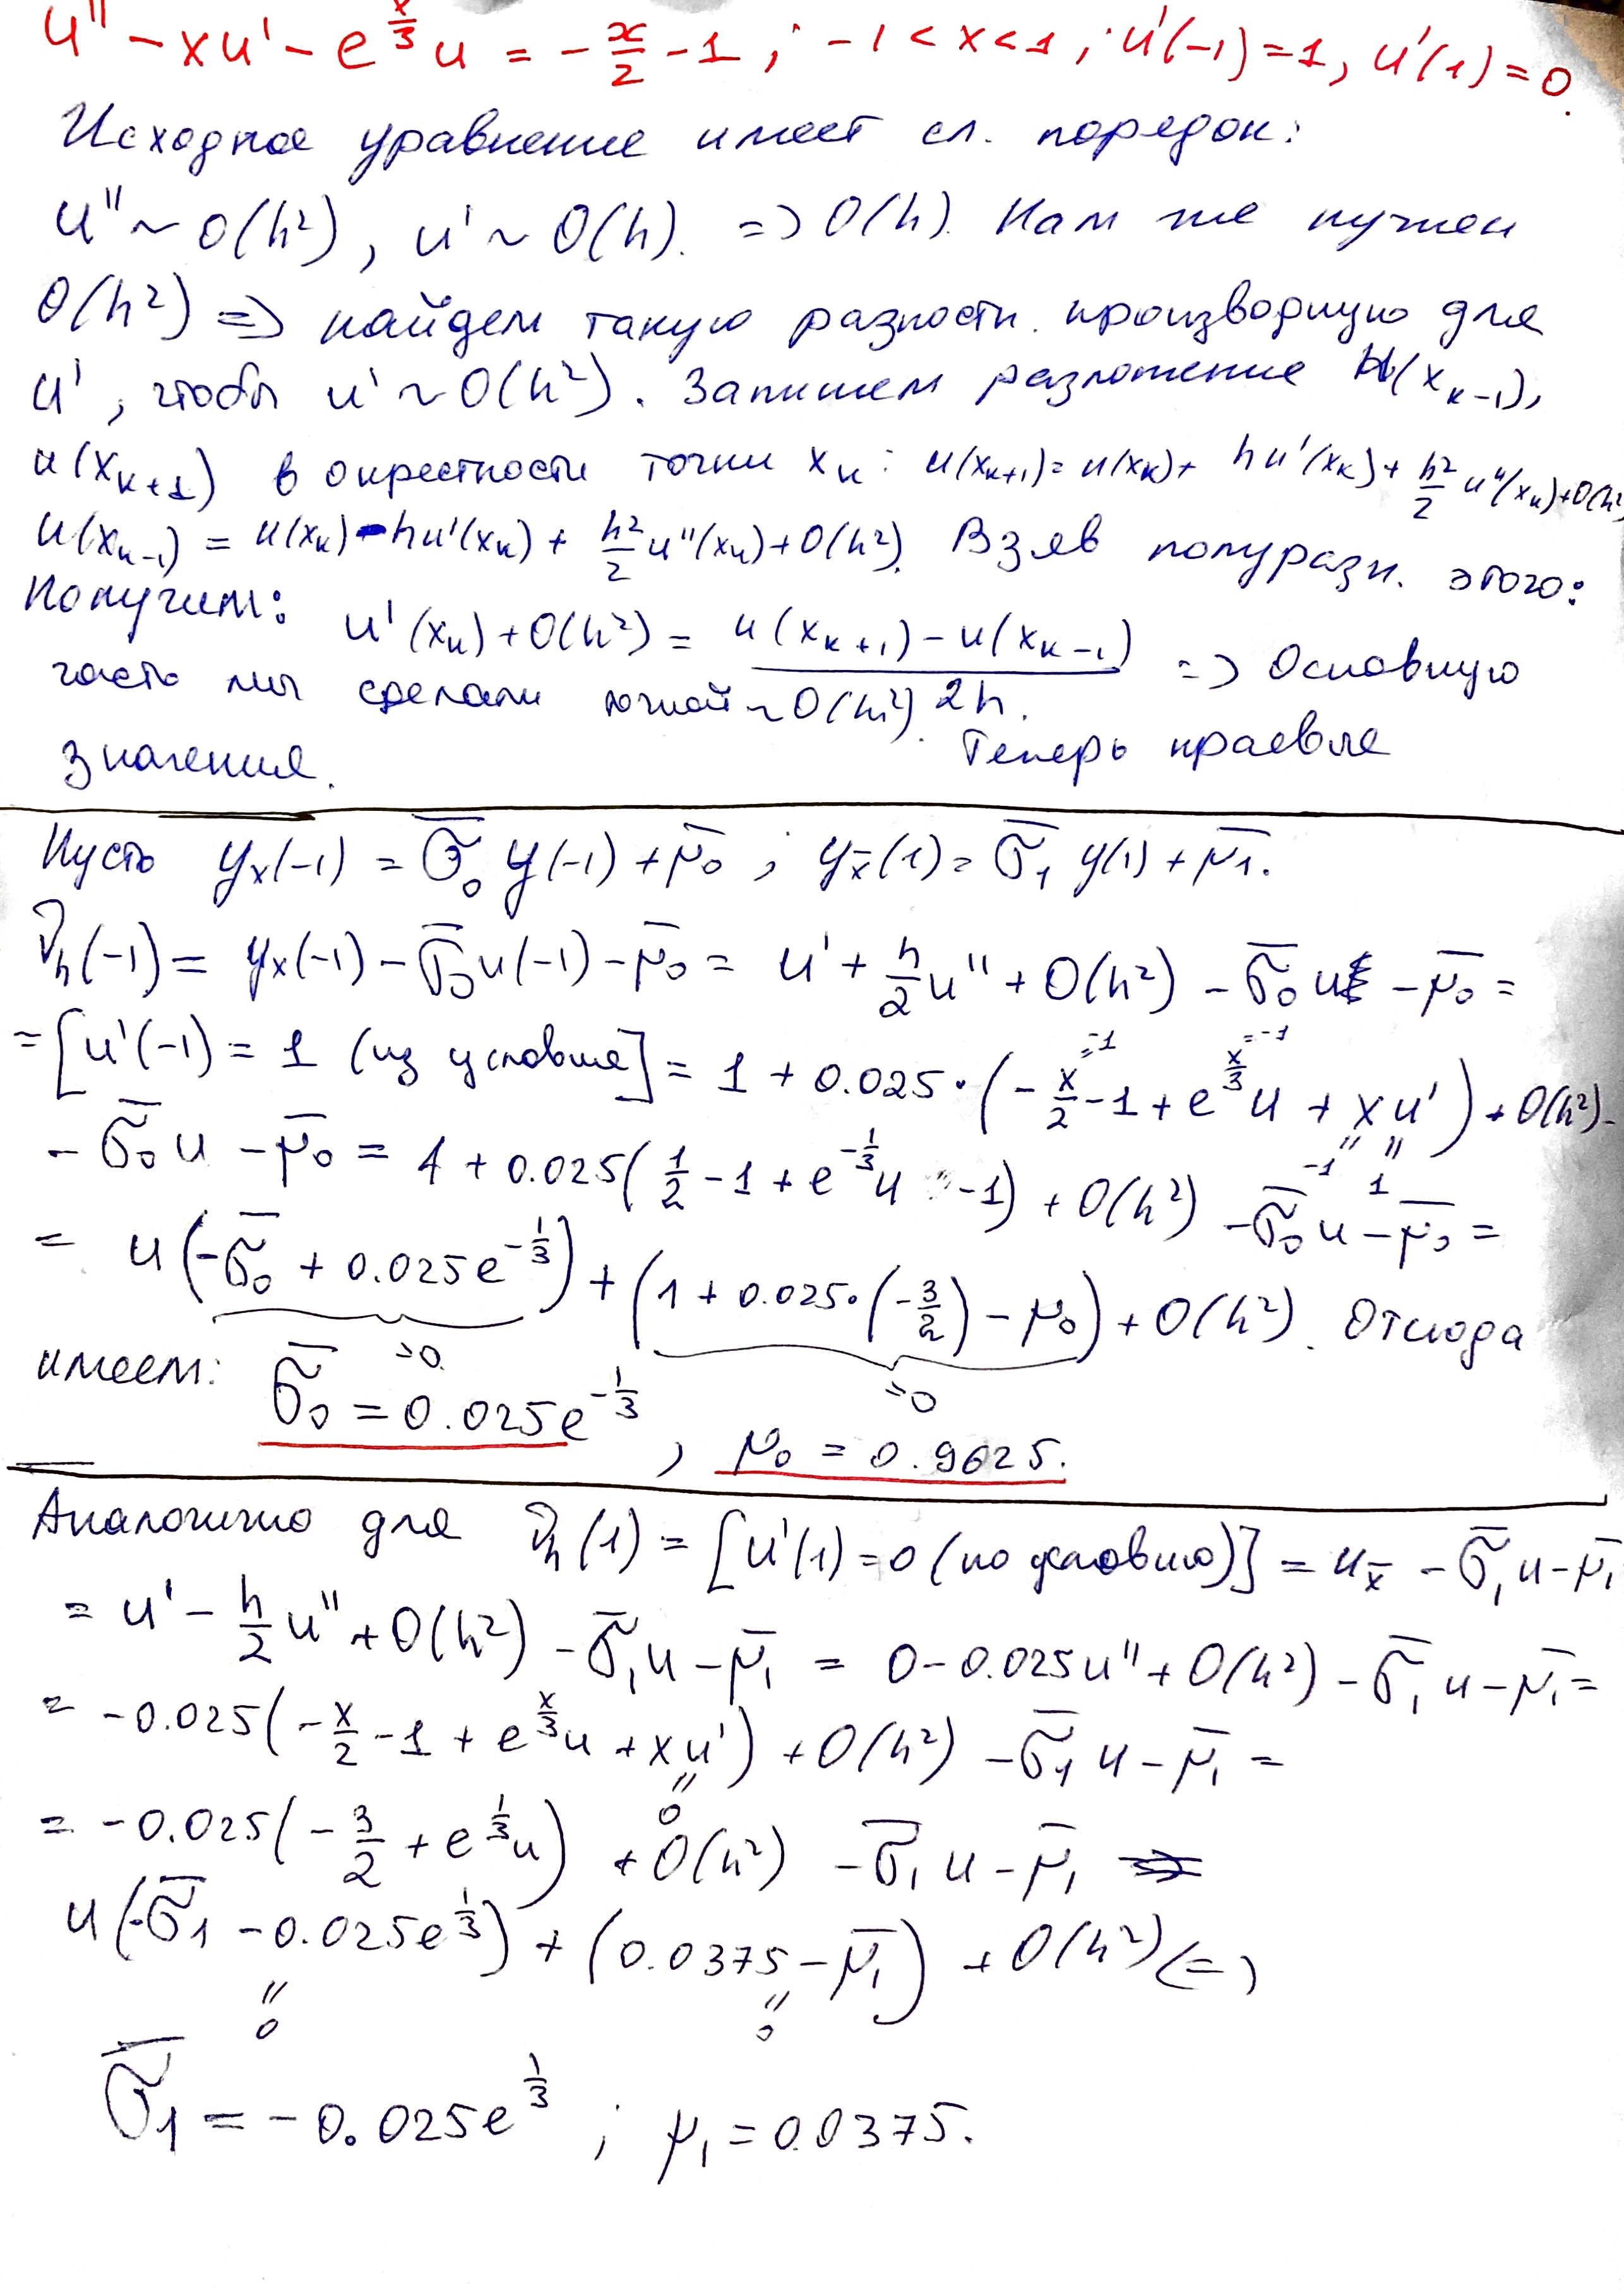 u'' - xu' - e^{x/3} u = -x/2 - 1 ; -1 < x < 1 ; u'(-1) = 1, u'(1) = 0.
Исходное уравнение имеет сл. порядок:
u'' ~ O(h²), u' ~ O(h). => O(h). Нам же нужен
O(h²) => найдем такую разностн. производную для
u', чтобы u' ~ O(h²). Запишем разложение u(x_{k-1}),
u(x_{k+1}) в окрестности точки x_k: u(x_{k+1}) = u(x_k) + hu'(x_k) + h²/2 u''(x_k) + O(h²)
u(x_{k-1}) = u(x_k) - hu'(x_k) + h²/2 u''(x_k) + O(h²). Взяв полуразн. этого:
Получим: u'(x_k) + O(h²) = (u(x_{k+1}) - u(x_{k-1})) / 2h. => Основную
часть мы сделали точной ~ O(h²). Теперь краевые
значения.
Пусть y_x(-1) = σ̄₀ y(-1) + μ̄₀ ; y_x̄(1) = σ̄₁ y(1) + μ̄₁.
ν_h(-1) = y_x(-1) - σ̄₀u(-1) - μ̄₀ = u' + h/2 u'' + O(h²) - σ̄₀u - μ̄₀ =
= [u'(-1) = 1 (из условия] = 1 + 0.025·(-x/2 - 1 + e^{x/3} u + xu') + O(h²) -
=-1 =-1 -1 1
- σ̄₀u - μ̄₀ = 1 + 0.025(1/2 - 1 + e^{-1/3} u - 1) + O(h²) - σ̄₀u - μ̄₀ =
= u(-σ̄₀ + 0.025e^{-1/3}) + (1 + 0.025·(-3/2) - μ₀) + O(h²). Отсюда
=0 =0
имеем: σ̄₀ = 0.025e^{-1/3}, μ₀ = 0.9625.
Аналогично для ν_h(1) = [u'(1) = 0 (по условию)] = u_x̄ - σ̄₁u - μ̄₁
= u' - h/2 u'' + O(h²) - σ̄₁u - μ̄₁ = 0 - 0.025u'' + O(h²) - σ̄₁u - μ̄₁ =
= -0.025(-x/2 - 1 + e^{x/3} u + xu') + O(h²) - σ̄₁u - μ̄₁ =
0
= -0.025(-3/2 + e^{1/3} u) + O(h²) - σ̄₁u - μ̄₁ =>
u(-σ̄₁ - 0.025e^{1/3}) + (0.0375 - μ̄₁) + O(h²) (=)
0 0
σ̄₁ = -0.025e^{1/3} ; μ₁ = 0.0375.